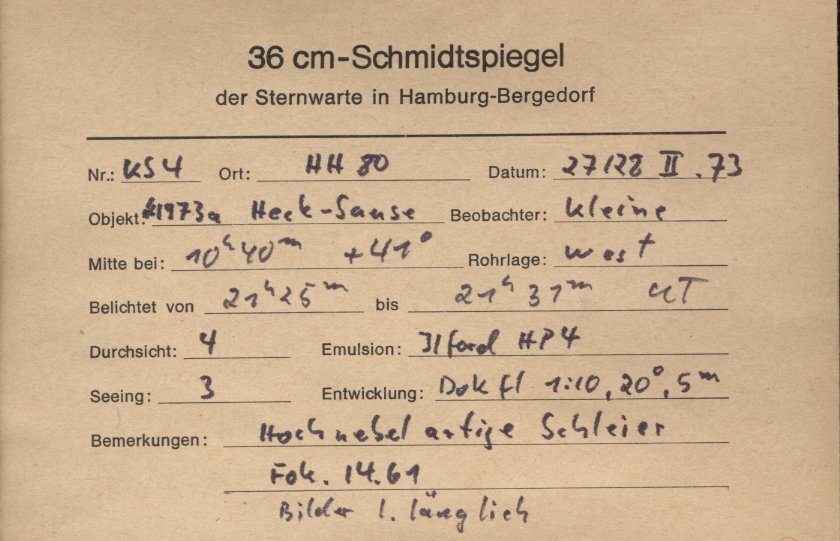 36 cm-Schmidtspiegel
der Sternwarte in Hamburg-Bergedorf
Nr.: KS4 Ort: HH 80 Datum: 27/28 II . 73
Objekt: 1973a Heck-Sause Beobachter: Kleine
Mitte bei: 10ʰ40ᵐ +41° Rohrlage: west
Belichtet von 21ʰ25ᵐ bis 21ʰ31ᵐ UT
Durchsicht: 4 Emulsion: Ilford HP4
Seeing: 3 Entwicklung: Dokfl 1:10, 20°, 5ᵐ
Bemerkungen: Hochnebelartige Schleier
Fok. 14.61
Bilder l. länglich